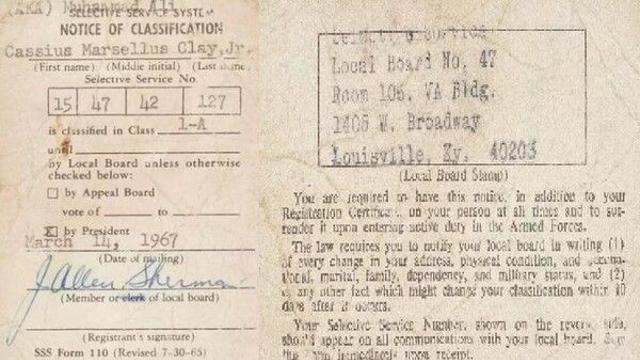 (AKA) Muhammad Ali
SELECTIVE SERVICE SYSTEM
NOTICE OF CLASSIFICATION
Cassius Marsellus Clay, Jr.
(First name) (Middle initial) (Last name)
Selective Service No.
15 47 42 127
is classified in Class 1-A
until
by Local Board unless otherwise
checked below:
by Appeal Board
vote of to
X by President
March 14, 1967
(Date of mailing)
J Allen Sherman
(Member or clerk of local board)
(Registrant's signature)
SSS Form 110 (Revised 7-30-65)
Local Board No. 47
Room 106, VA Bldg.
1405 W. Broadway
Louisville, Ky. 40203
(Local Board Stamp)
You are required to have this notice, in addition to your
Registration Certificate, on your person at all times and to sur-
render it upon entering active duty in the Armed Forces.
The law requires you to notify your local board in writing (1)
of every change in your address, physical condition, and occupa-
tional, marital, family, dependency, and military status, and (2)
of any other fact which might change your classification within 10
days after it occurs.
Your Selective Service Number, shown on the reverse side,
should appear on all communications with your local board.
immediately upon receipt.